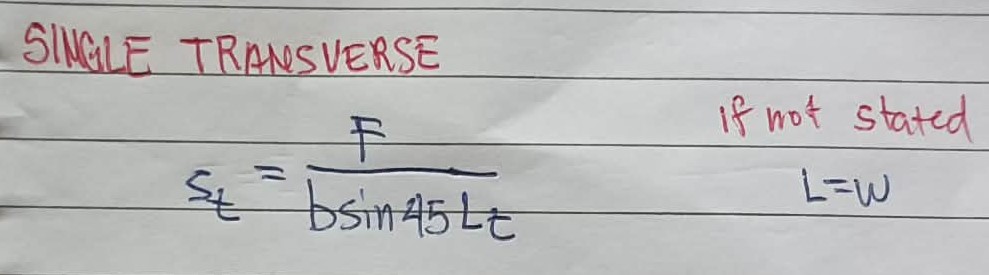 SINGLE TRANSVERSE
if not stated
S_t = F / b sin 45 L t
L = W